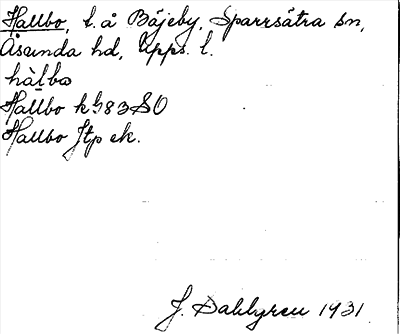 Hallbo, t. å Bäjeby, Sparrsätra sn,
Åsunda hd, Upps. l.
hàlbo
Hallbo k 483 SO
Hallbo Jtp ek.
J. Dahlgren 1931